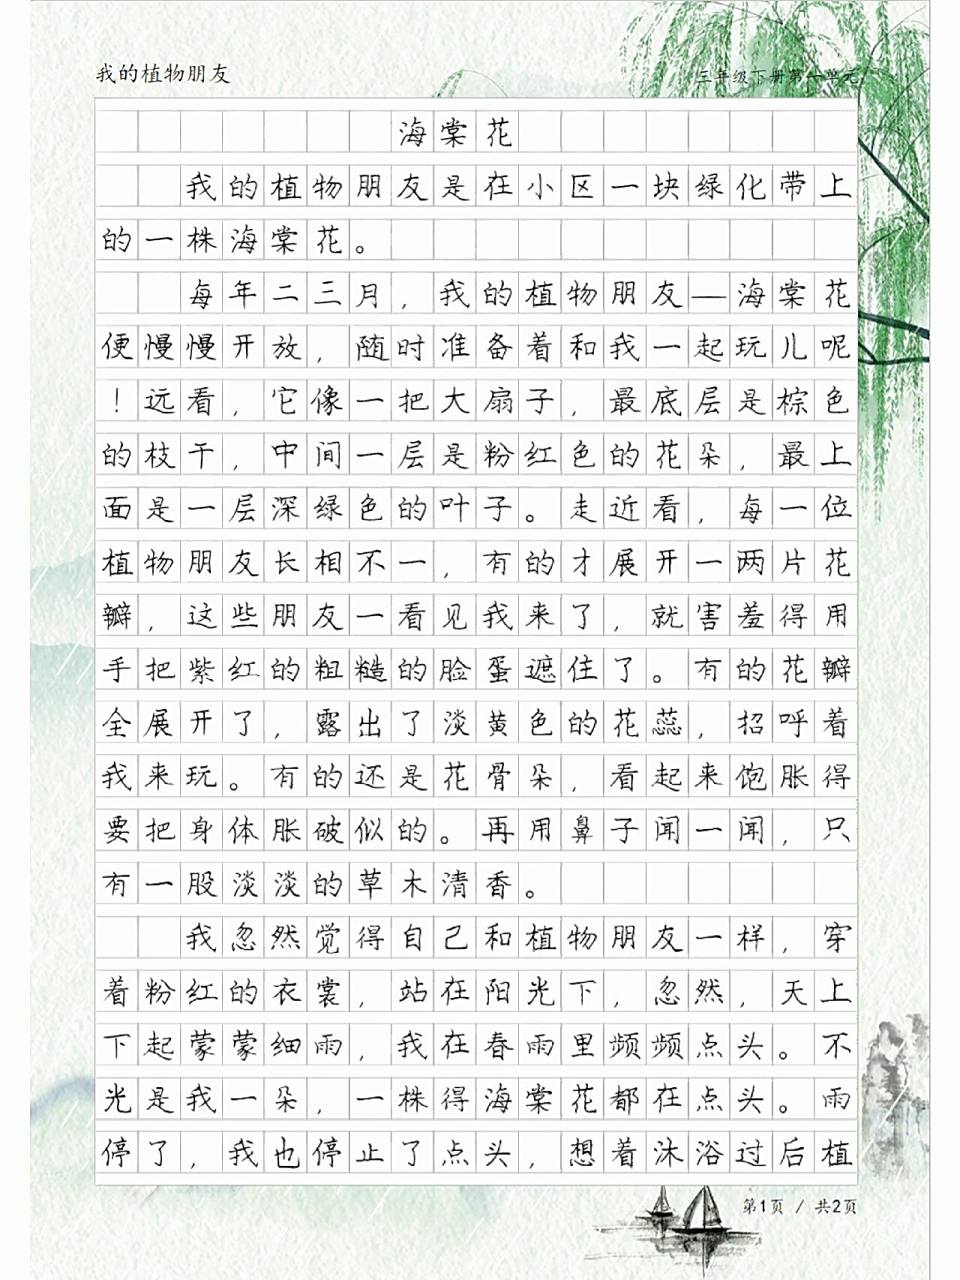 我的植物朋友
三年级下册第一单元
海棠花
我的植物朋友是在小区一块绿化带上
的一株海棠花。
每年二三月，我的植物朋友—海棠花
便慢慢开放，随时准备着和我一起玩儿呢
！远看，它像一把大扇子，最底层是棕色
的枝干，中间一层是粉红色的花朵，最上
面是一层深绿色的叶子。走近看，每一位
植物朋友长相不一，有的才展开一两片花
瓣，这些朋友一看见我来了，就害羞得用
手把紫红的粗糙的脸蛋遮住了。有的花瓣
全展开了，露出了淡黄色的花蕊，招呼着
我来玩。有的还是花骨朵，看起来饱胀得
要把身体胀破似的。再用鼻子闻一闻，只
有一股淡淡的草木清香。
我忽然觉得自己和植物朋友一样，穿
着粉红的衣裳，站在阳光下，忽然，天上
下起蒙蒙细雨，我在春雨里频频点头。不
光是我一朵，一株得海棠花都在点头。雨
停了，我也停止了点头，想着沐浴过后植
第1页 / 共2页